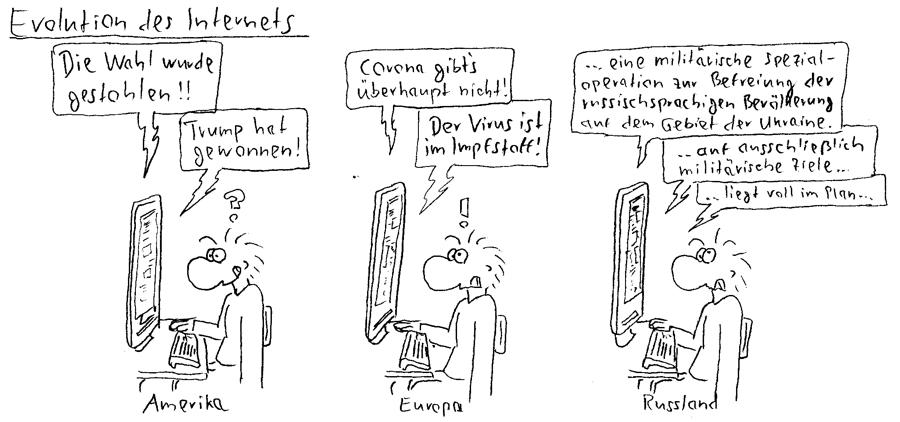 Evolution des Internets
Die Wahl wurde
gestohlen!!
Trump hat
gewonnen!
?
Amerika
Corona gibt's
überhaupt nicht!
Der Virus ist
im Impfstoff!
!
Europa
... eine militärische Spezial-
operation zur Befreiung der
russischsprachigen Bevölkerung
auf dem Gebiet der Ukraine.
... auf ausschließlich
militärische Ziele...
... liegt voll im Plan...
Russland